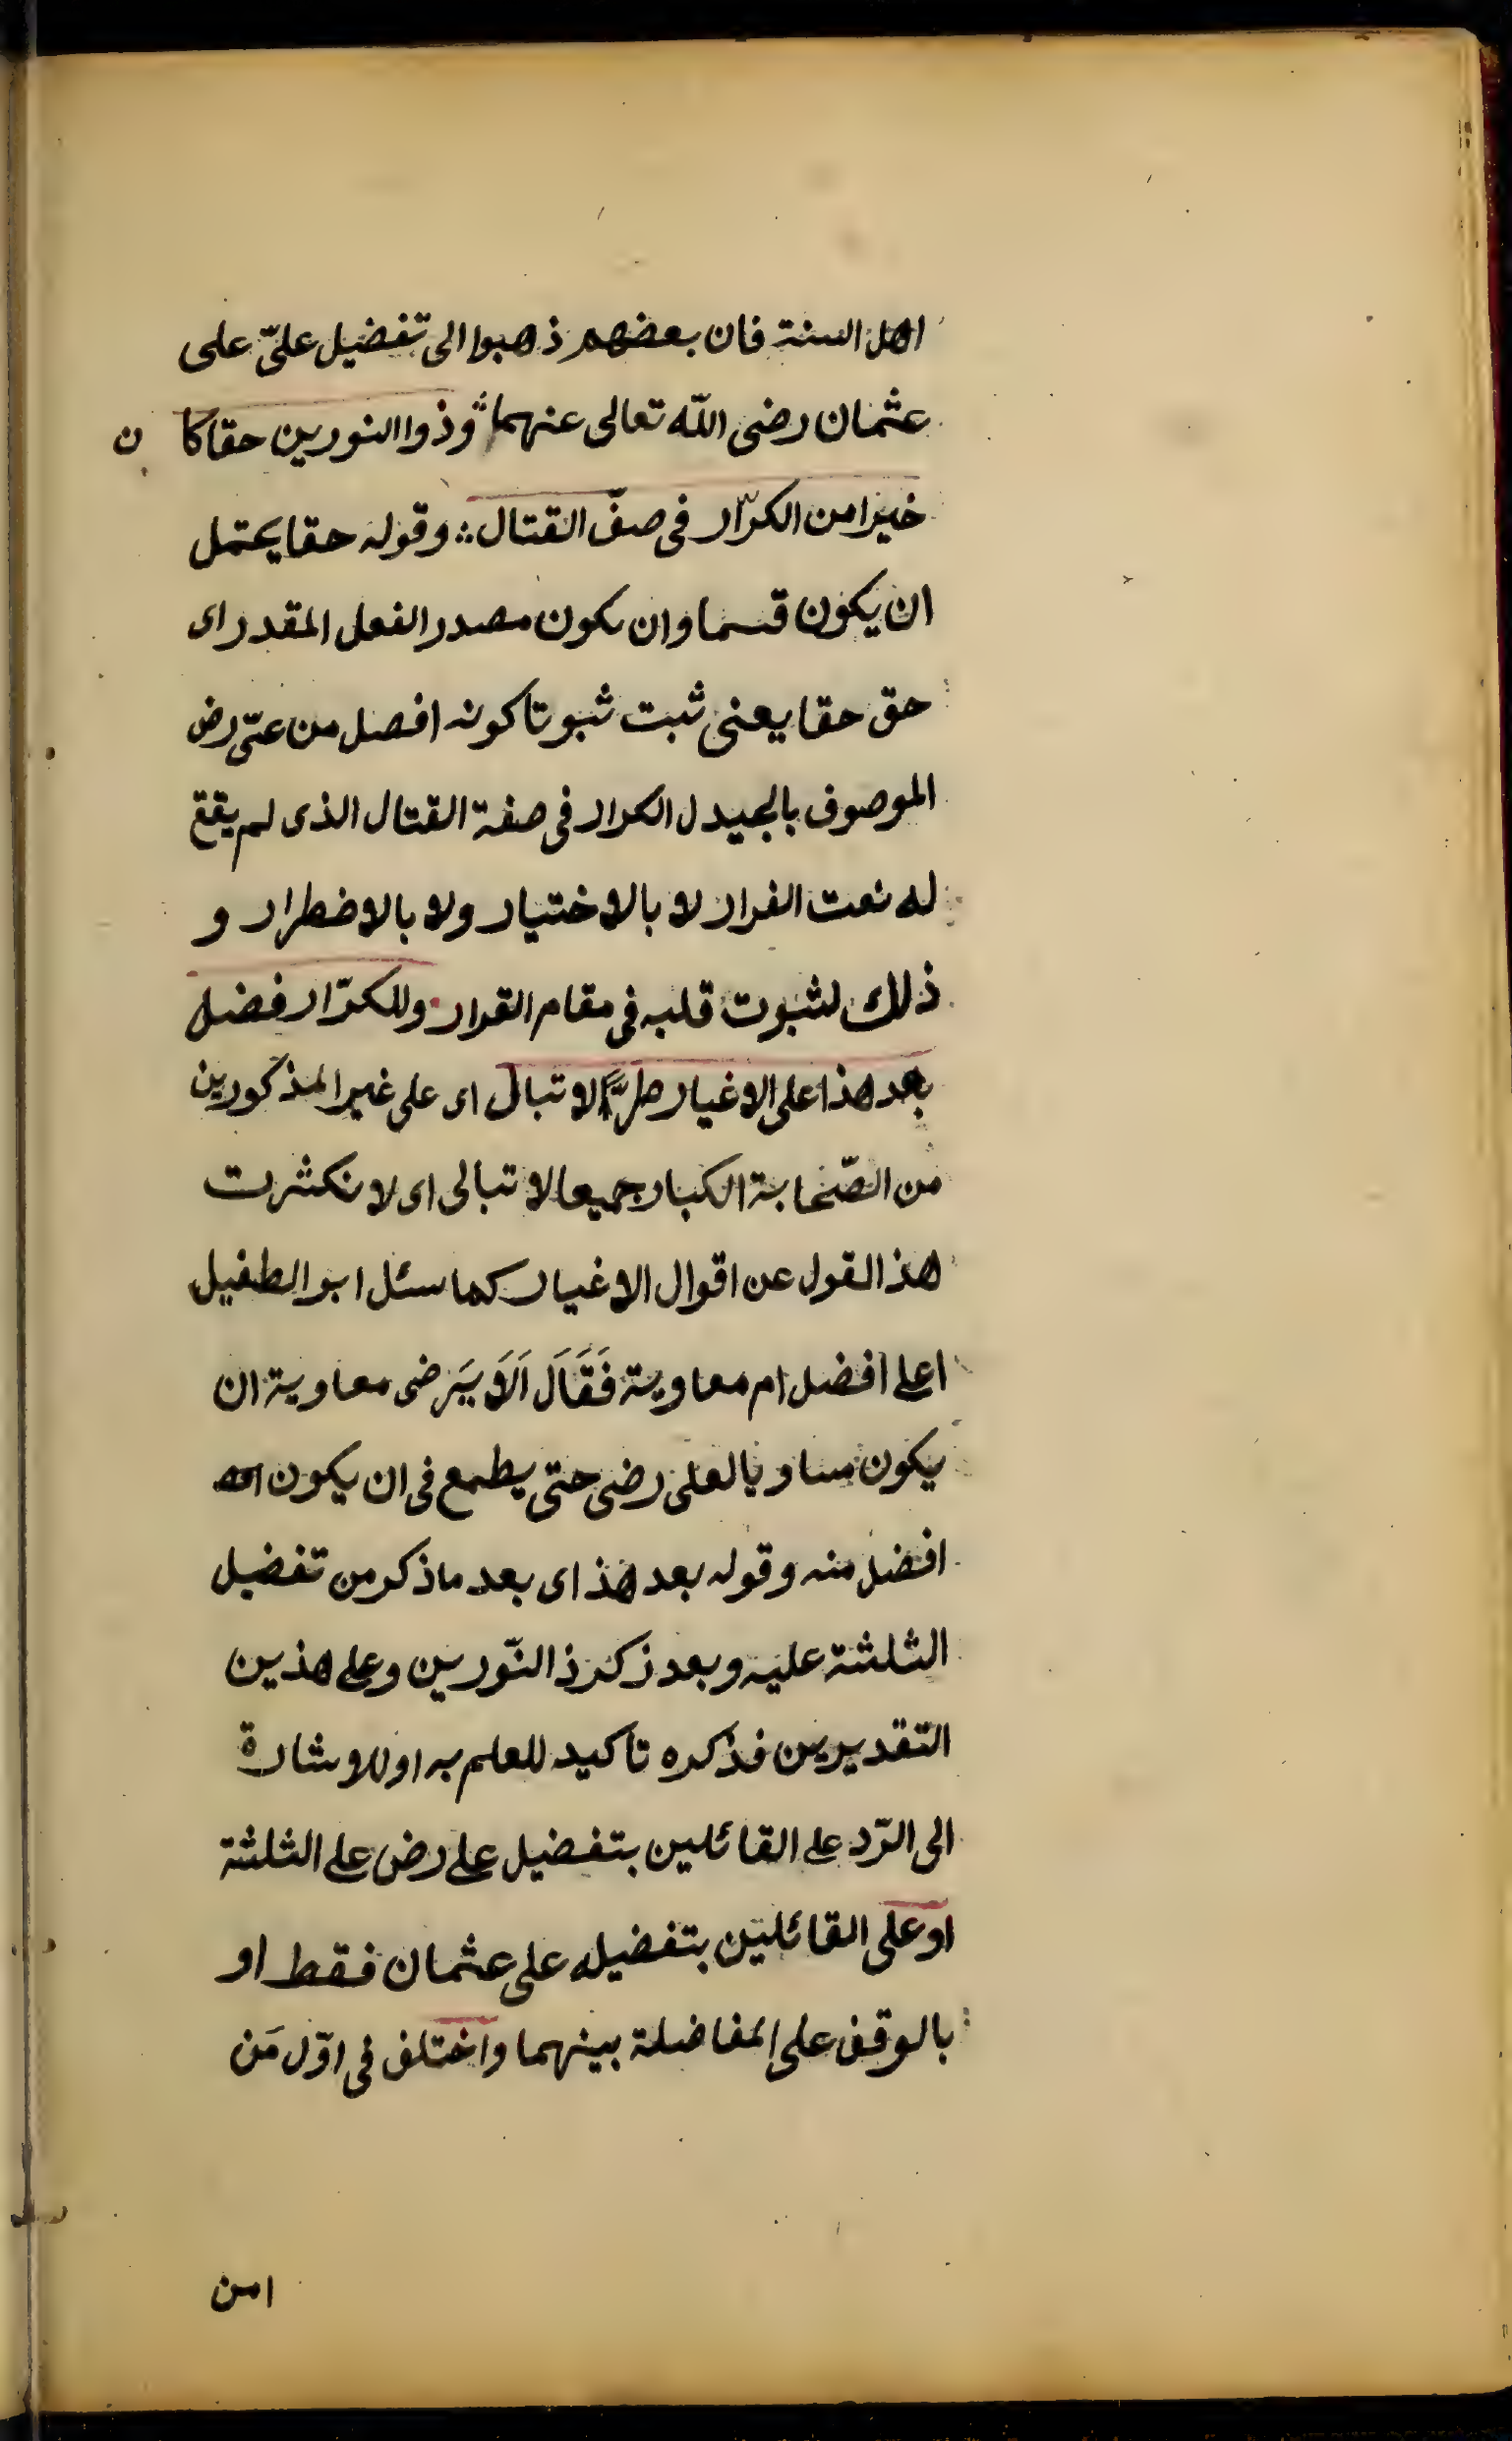 اهل السنة فان بعضهم ذهبوا الى تفضيل علىّ على
عثمان رضى اللّه تعالى عنهما وذوا النورين حقا كا ن
خيرا من الكرّار فى صفّ القتال ؞ وقوله حقا يحتمل
ان يكون قسما وان يكون مصدر الفعل المقدر اى
حق حقا يعنى ثبت ثبوتا كونه افضل من علىّ رض
الموصوف بالجيدل الكرار فى صفة القتال الذى لم يقع
له نعت الفرار لا بالاختيار ولا بالاضطرار و
ذلك لثبوت قلبه فى مقام القرار وللكرّار فضل
بعد هذا على الاغيار طرًّا لا تبال اى على غير المذكورين
من الصّحابة الكبار جميعا لا تبالى اى لا تكثرت
هذ القول عن اقوال الاغيار كما سئل ابو الطفيل
اعلى افضل ام معاوية فَقَالَ اَلَا يَرضى معاوية ان
يكون مساويا لعلى رضى حتى يطمع فى ان يكون
افضل منه وقوله بعد هذ اى بعد ما ذكر من تفضيل
الثلثة عليه وبعد ذكر ذ النّورين وعلى هذين
التقديرين فذكره تاكيد للعلم به او للاشارة
الى الرّد على القائلين بتفضيل على رض على الثلثة
او على القائلين بتفضيله على عثمان فقط او
بالوقف على المفاضلة بينهما واختلف فى اوّل مَن
امن